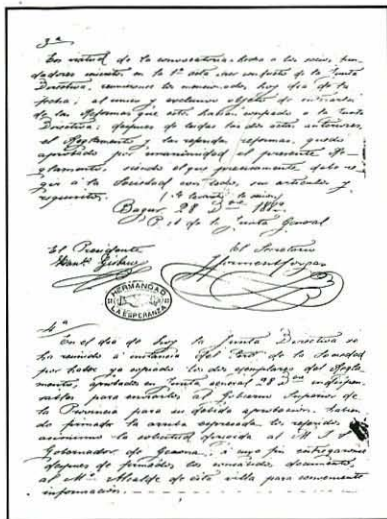 3ª
En virtud de la convocatoria hecha a los socios fun-
dadores inscritos en la 1ª acta por conducto de la Junta
Directiva, reunironse los mencionados, hoy dia de la
fecha; al unico y exclusivo objeto de enterarles
de las Reformas que estos habian confiado a la Junta
Directiva; despues de leidas las dos actas anteriores,
el Reglamento y las referidas reformas, quedo
aprobado por unanimidad el presente Re-
glamento, siendo el que precisamente debe re-
gir á la Sociedad con todos sus articulos y
requisitos.
Bagur 28
P. A. de la Junta General
El Presidente
El Secretario
HERMANDAD
LA ESPERANZA
4ª
En el dia de hoy la Junta Directiva se
ha reunido á instancia del Pres. de la Sociedad
por haber ya copiado los dos ejemplares del Regla-
mento, aprobados en Junta general 28 indispen-
sables para enviarlos al Gobierno Superior de
la Provincia para su debida aprobacion. habien-
do firmado la arriba expresada los referidos
asimismo la solicitud dirigida al M. I. S.
Gobernador de Gerona; á cuyo fin entregaron
despues de firmados los documentos,
al Alcalde de esta villa para conveniente
informacion.